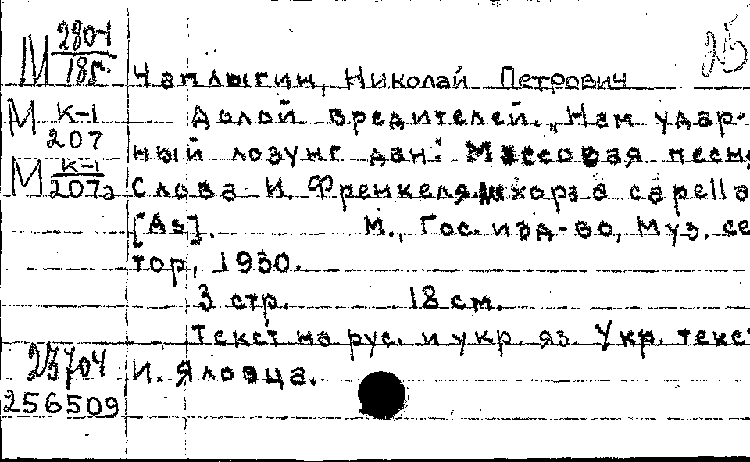 М 280-1/18г.
25
Чаплыгин, Николай Петрович
М К-1/207
Долой вредителей. „Нам удар-
ный лозунг дан: Массовая песня
М К-1/207а
Слова И. Френкеля. хора a capella
[As]. М., Гос. изд-во, Муз. сек
тор, 1930.
3 стр. 18 см.
Текст на рус. и укр. яз. Укр. текст
23704
И. Яловца.
256509